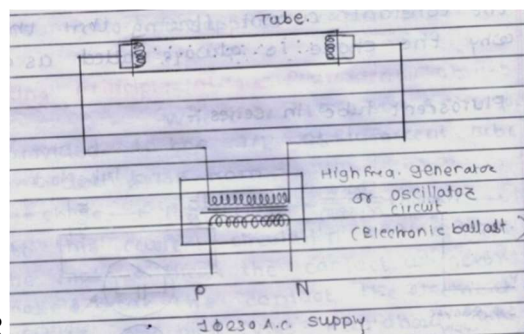 Tube.
High Freq. generator
or oscillator
circuit
(Electronic ballast)
P N
1ϕ230 A.C. supply